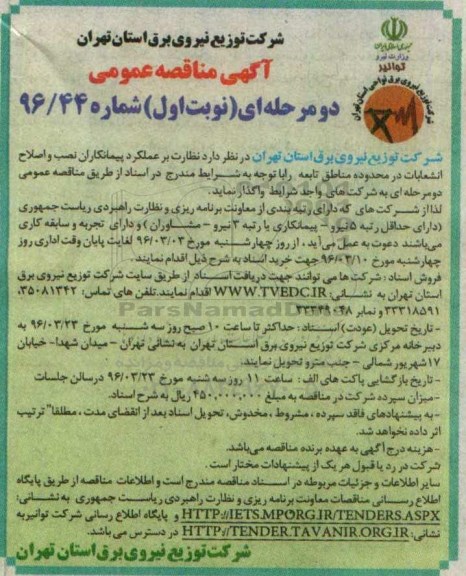 جمهوری اسلامی ایران
وزارت نیرو
توانیر
شرکت توزیع نیروی برق نواحی استان تهران
شرکت توزیع نیروی برق استان تهران
آگهی مناقصه عمومی
دو مرحله‌ای (نوبت اول) شماره ۹۶/۴۴
شرکت توزیع نیروی برق استان تهران در نظر دارد نظارت بر عملکرد پیمانکاران نصب و اصلاح
انشعابات در محدوده مناطق تابعه را با توجه به شرایط مندرج در اسناد از طریق مناقصه عمومی
دو مرحله ای به شرکت های واجد شرایط واگذار نماید.
لذا از شرکت های که دارای رتبه بندی از معاونت برنامه ریزی و نظارت راهبردی ریاست جمهوری
(دارای حداقل رتبه ۵ نیرو – پیمانکاری یا رتبه ۳ نیرو – مشاوران) و دارای تجربه و سابقه کاری
می‌باشند دعوت به عمل می‌آید، از روز چهارشنبه مورخ ۹۶/۰۳/۰۳ لغایت پایان وقت اداری روز
چهارشنبه مورخ ۹۶/۰۳/۱۰ جهت خرید اسناد به شرح ذیل اقدام نمایند.
فروش اسناد: شرکت ها می توانند جهت دریافت اسناد از طریق سایت شرکت توزیع نیروی برق
استان تهران به نشانی: WWW.TVEDC.IR اقدام نمایند. تلفن های تماس: ۳۵۰۸۱۳۴۲،
۳۳۳۱۸۵۹۱ و نمابر ۳۳۳۴۹۰۴۸
-تاریخ تحویل (عودت) اسناد: حداکثر تا ساعت ۱۰ صبح روز سه شنبه مورخ ۹۶/۰۳/۲۳ به
دبیرخانه مرکزی شرکت توزیع نیروی برق استان تهران به نشانی تهران – میدان شهدا- خیابان
۱۷ شهریور شمالی – جنب مترو تحویل نمایند.
-تاریخ بازگشایی پاکت های الف: ساعت ۱۱ روز سه شنبه مورخ ۹۶/۰۳/۲۳ در سالن جلسات
-میزان سپرده شرکت در مناقصه به مبلغ ۴۵۰,۰۰۰,۰۰۰ ریال به شرح اسناد.
-به پیشنهادهای فاقد سپرده، مشروط، مخدوش، تحویل اسناد بعد از انقضای مدت، مطلقا" ترتیب
اثر داده نخواهد شد.
-هزینه درج آگهی به عهده برنده مناقصه می‌باشد.
شرکت در رد یا قبول هر یک از پیشنهادات مختار است.
سایر اطلاعات و جزئیات مربوطه در اسناد مناقصه مندرج است و اطلاعات مناقصه از طریق پایگاه
اطلاع رسانی مناقصات معاونت برنامه ریزی و نظارت راهبردی ریاست جمهوری به نشانی:
HTTP://IETS.MPORG.IR/TENDERS.ASPX و پایگاه اطلاع رسانی شرکت توانیر به
نشانی: HTTP://TENDER.TAVANIR.ORG.IR در دسترس می باشد.
شرکت توزیع نیروی برق استان تهران
ParsNamadData